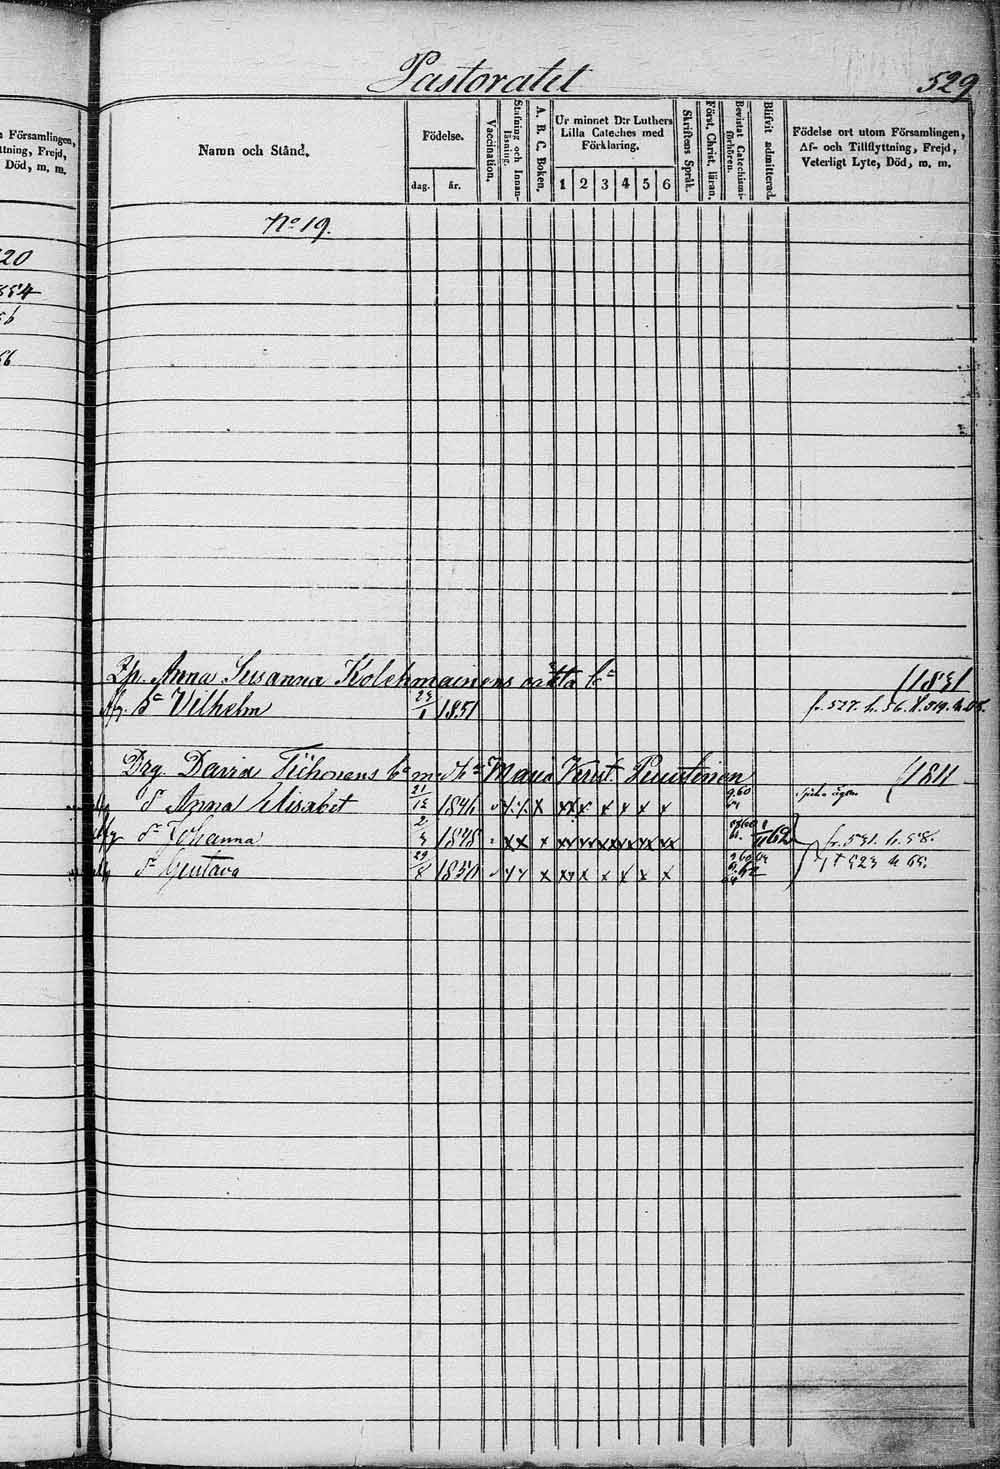 Pastoratet
529
Församlingen,
ttning, Frejd,
Död, m. m.
Namn och Stånd.
Födelse.
dag.
år.
Vaccination.
Stafning och Innan-
läsning.
A. B. C. Boken.
Ur minnet D:r Luthers
Lilla Cateches med
Förklaring.
1 2 3 4 5 6
Skriftens Språk.
Först. Christ. läran.
Bevistat Catechismi-
förhören.
Blifvit admitterad.
Födelse ort utom Församlingen,
Af- och Tillflyttning, Frejd,
Veterligt Lyte, Död, m. m.
No 19.
20
54
56
Anna Susanna Kolehmainens oäkta bn
(1831
Sn Vilhelm 23/1 1851 fr. 527. h. 56. f. 519. h. 65.
Drg. David Tichonens bn m h. Maria Krist. Puustinen
(1811
Dr Anna Elisabet 21/12 1846
Dr Johanna 2/3 1848 11 62 fr. 531. h. 58.
Dr Gustava 29/8 1850 f 523 h 65.